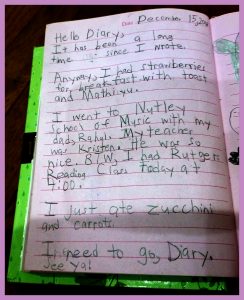 Date December 15, 20
Hello Diary,
It has been a long
time since I wrote.
Anyway, I had strawberries
for breakfast with, toast
and
I went to Nutley
School of Music with my
dad, Rahul. My teacher
was Kristen. He was so
nice. B/W, I had Rutgers
Reading Class today at
4:00.
I just ate zucchini
and carrots.
I need to go, Diary.
See ya!